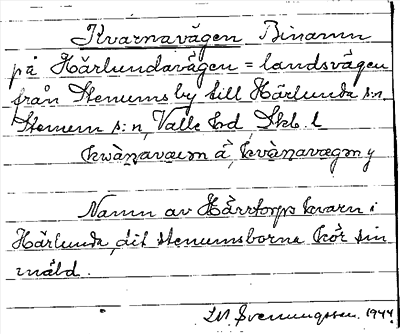 Kvarnavägen Binamn
på Härlundavägen = landsvägen
från Stenums by till Härlunda s:n,
Stenum s:n, Valle hd, Skb. l.
kwàṇavæım å, kvàṇavægm y
Namn av Härrtorps kvarn i
Härlunda, dit stenumsborna kör sin
mäld.
Svenungsson. 1944